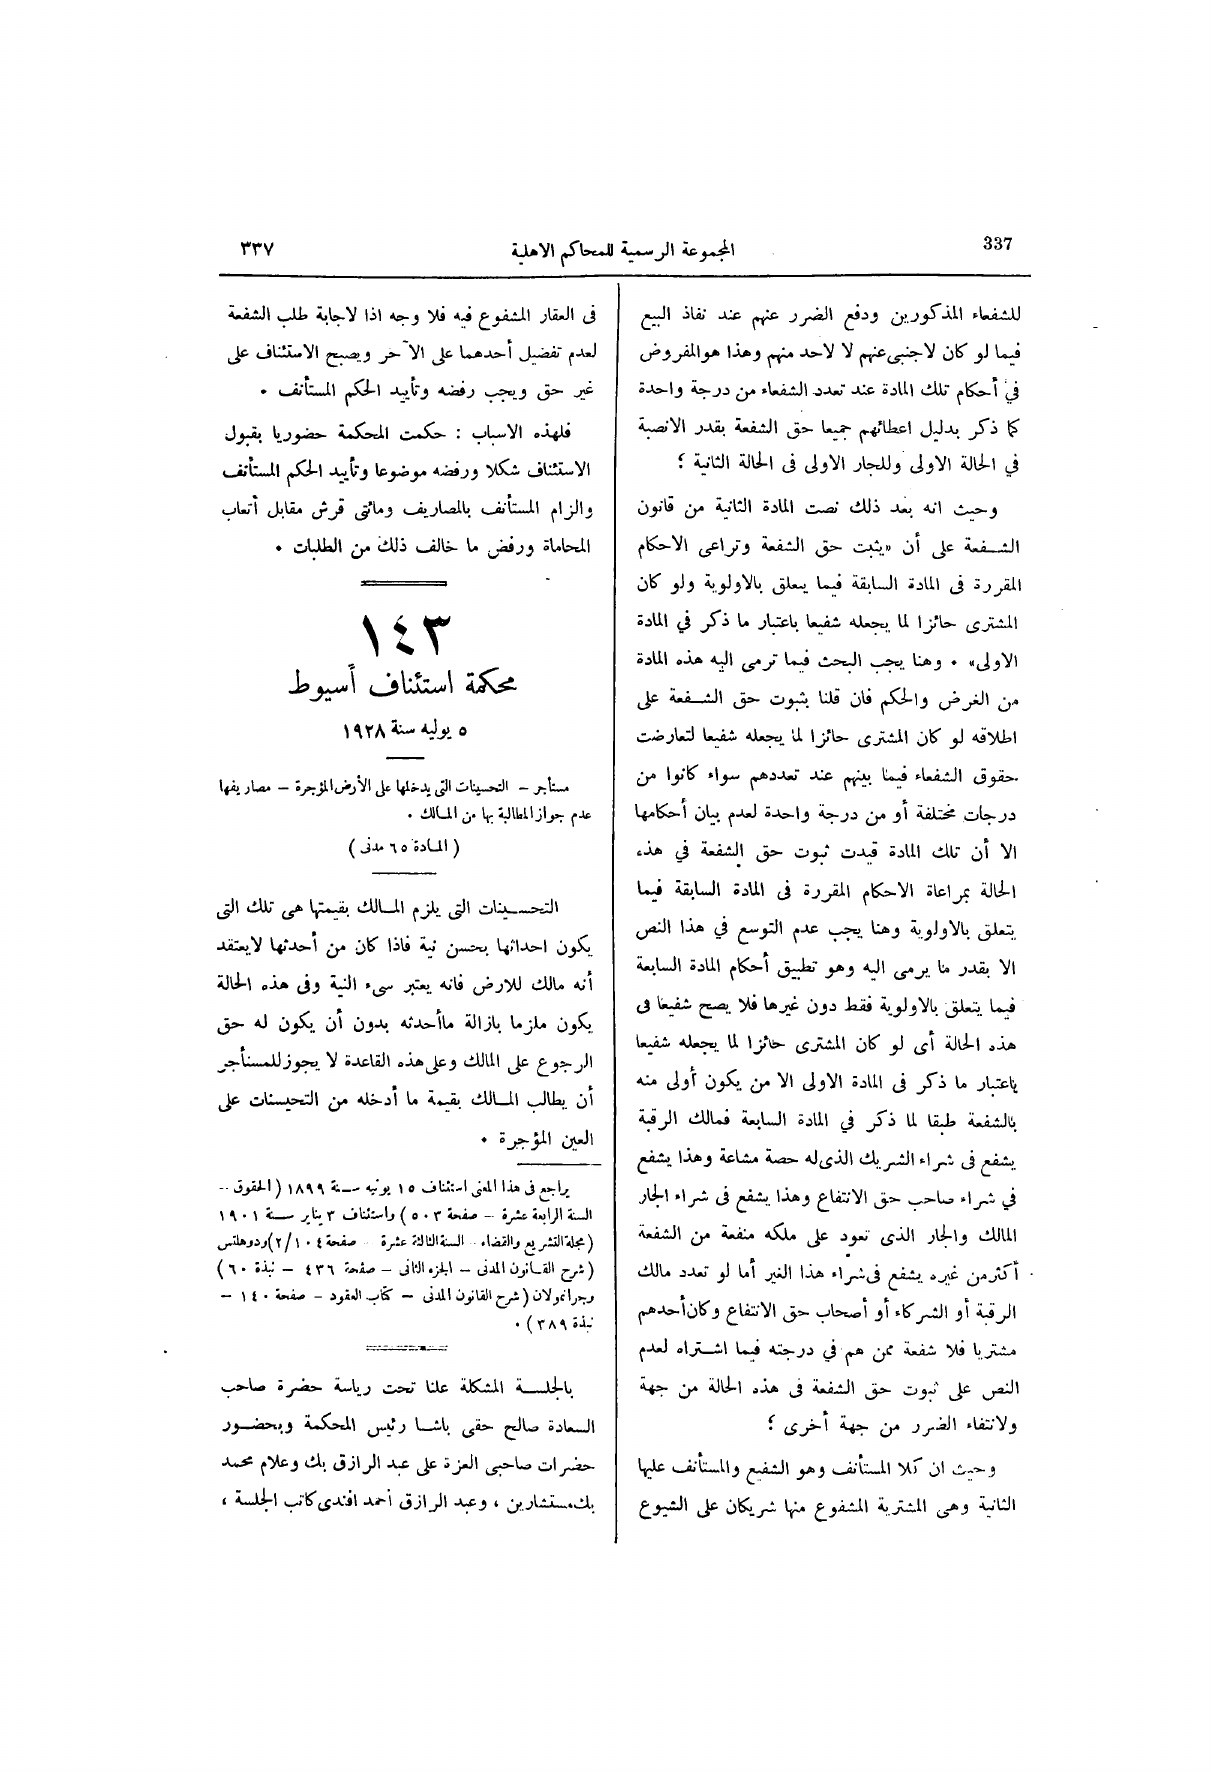 337
المجموعة الرسمية للمحاكم الاهلية
٣٣٧
للشفعاء المذكورين ودفع الضرر عنهم عند نفاذ البيع
فيما لو كان لاجنبى عنهم لا لاحد منهم وهذا هو المفروض
في أحكام تلك المادة عند تعدد الشفعاء من درجة واحدة
كما ذكر بدليل اعطائهم جميعا حق الشفعة بقدر الانصبة
في الحالة الاولى وللجار الاولى فى الحالة الثانية ؟
وحيث انه بعد ذلك نصت المادة الثانية من قانون
الشفعة على أن «يثبت حق الشفعة وتراعى الاحكام
المقررة فى المادة السابقة فيما يتعلق بالاولوية ولو كان
المشترى حائزا لما يجعله شفيعا باعتبار ما ذكر في المادة
الاولى» . وهنا يجب البحث فيما ترمى اليه هذه المادة
من الغرض والحكم فان قلنا بثبوت حق الشفعة على
اطلاقه لو كان المشترى حائزا لما يجعله شفيعا لتعارضت
حقوق الشفعاء فيما بينهم عند تعددهم سواء كانوا من
درجات مختلفة أو من درجة واحدة لعدم بيان أحكامها
الا أن تلك المادة قيدت ثبوت حق الشفعة في هذه
الحالة بمراعاة الاحكام المقررة فى المادة السابقة فيما
يتعلق بالاولوية وهنا يجب عدم التوسع في هذا النص
الا بقدر ما يرمى اليه وهو تطبيق أحكام المادة السابعة
فيما يتعلق بالاولوية فقط دون غيرها فلا يصح شفيعا فى
هذه الحالة أى لو كان المشترى حائزا لما يجعله شفيعا
باعتبار ما ذكر فى المادة الاولى الا من يكون أولى منه
بالشفعة طبقا لما ذكر في المادة السابعة فمالك الرقبة
يشفع فى شراء الشريك الذى له حصة مشاعة وهذا يشفع
في شراء صاحب حق الانتفاع وهذا يشفع فى شراء الجار
المالك والجار الذى تعود على ملكه منفعة من الشفعة
أكثر من غيره يشفع فى شراء هذا الغير أما لو تعدد مالك
الرقبة أو الشركاء أو أصحاب حق الانتفاع وكان أحدهم
مشتريا فلا شفعة ممن هم في درجته فيما اشتراه لعدم
النص على ثبوت حق الشفعة فى هذه الحالة من جهة
ولانتفاء الضرر من جهة أخرى ؟
وحيث ان كلا المستأنف وهو الشفيع والمستأنف عليها
الثانية وهى المشترية المشفوع منها شريكان على الشيوع
فى العقار المشفوع فيه فلا وجه اذا لاجابة طلب الشفعة
لعدم تفضيل أحدهما على الآخر ويصبح الاستئناف على
غير حق ويجب رفضه وتأييد الحكم المستأنف .
فلهذه الاسباب : حكمت المحكمة حضوريا بقبول
الاستئناف شكلا ورفضه موضوعا وتأييد الحكم المستأنف
والزام المستأنف بالمصاريف ومائتى قرش مقابل أتعاب
المحاماة ورفض ما خالف ذلك من الطلبات .
١٤٣
محكمة استئناف أسيوط
٥ يوليه سنة ١٩٢٨
مستأجر – التحسينات التى يدخلها على الأرض المؤجرة – مصاريفها
عدم جواز المطالبة بها من المالك .
( المادة ٦٥ مدنى )
التحسينات التى يلزم المالك بقيمتها هى تلك التى
يكون احداثها بحسن نية فاذا كان من أحدثها لا يعتقد
أنه مالك للارض فانه يعتبر سىء النية وفى هذه الحالة
يكون ملزما بازالة ما أحدثه بدون أن يكون له حق
الرجوع على المالك وعلى هذه القاعدة لا يجوز للمستأجر
أن يطالب المالك بقيمة ما أدخله من التحيسنات على
العين المؤجرة .
يراجع فى هذا المعنى استئناف ١٥ يونيه سنة ١٨٩٩ ( الحقوق –
السنة الرابعة عشرة – صفحة ٥٠٣ ) واستئناف ٣ يناير سنة ١٩٠١
(مجلة التشريع والقضاء – السنة الثالثة عشرة – صفحة ٢/١٠٤) ودوهلتس
( شرح القانون المدنى – الجزء الثانى – صفحة ٤٣٦ – نبذة ٦٠ )
وجرانمولان ( شرح القانون المدنى – كتاب العقود – صفحة ١٤٠ –
نبذة ٣٨٩ ) .
بالجلسة المشكلة علنا تحت رياسة حضرة صاحب
السعادة صالح حقى باشا رئيس المحكمة وبحضور
حضرات صاحبى العزة على عبد الرازق بك وعلام محمد
بك مستشارين ، وعبد الرازق أحمد افندى كاتب الجلسة ،